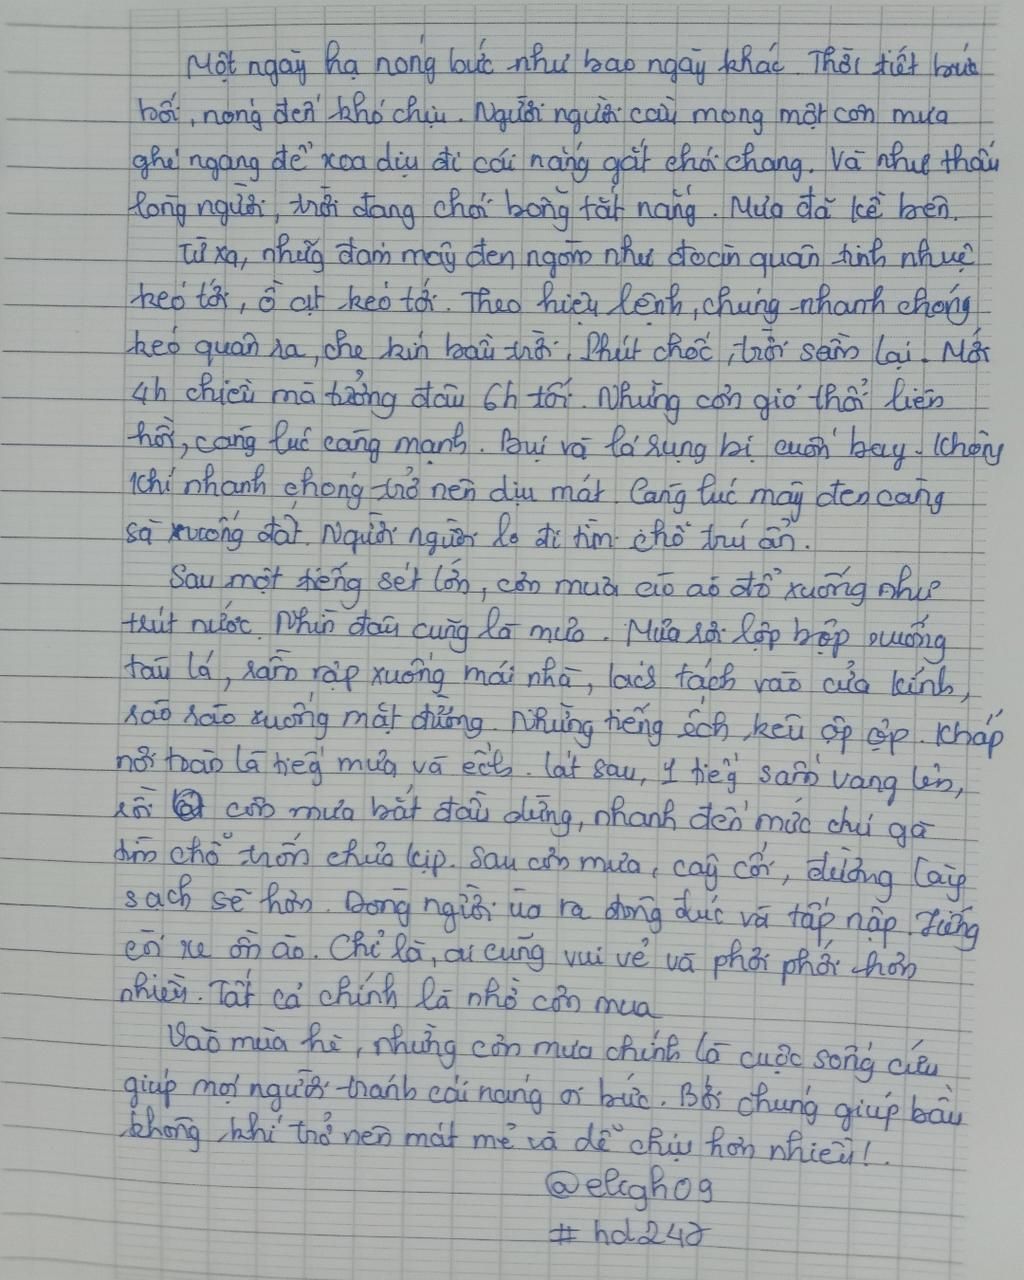 Một ngày hạ nóng bức như bao ngày khác. Thời tiết bức
bối, nóng đến khó chịu. Người người cầu mong một cơn mưa
ghé ngang để xoa dịu đi cái nắng gắt chói chang. Và như thấu
lòng người, trời đang chói bỗng tắt nắng. Mưa đã kề bên.
Từ xa, những đám mây đen ngòm như đoàn quân tinh nhuệ
kéo tới, ồ ạt kéo tới. Theo hiệu lệnh, chúng nhanh chóng
kéo quân ra, che kín bầu trời. Phút chốc, trời sầm lại. Mới
4h chiều mà tưởng đâu 6h tối. Những cơn gió thổi liên
hồi, càng lúc càng mạnh. Bụi và lá rụng bị cuốn bay. Không
khí nhanh chóng trở nên dịu mát. Càng lúc mây đen càng
sà xuống đất. Người người lo đi tìm chỗ trú ẩn.
Sau một tiếng sét lớn, cơn mưa ào ào đổ xuống như
trút nước. Nhìn đâu cũng là mưa. Mưa rơi lộp bộp xuống
tàu lá, rầm rập xuống mái nhà, lách tách vào cửa kính,
rào rào xuống mặt đường. Những tiếng ếch kêu ộp ộp. Khắp
nơi toàn là tiếng mưa và ếch. Lát sau, 1 tiếng sấm vang lên,
rồi cơn mưa bắt đầu dừng, nhanh đến mức chú gà
tìm chỗ trốn chưa kịp. Sau cơn mưa, cây cối, đường
sạch sẽ hơn. Dòng người ùa ra đông đúc và tấp nập. Tiếng
còi xe ồn ào. Chỉ là, ai cũng vui vẻ và phơi phới hơn
nhiều. Tất cả chính là nhờ cơn mưa
Vào mùa hè, những cơn mưa chính là cuộc sống cứu
giúp mọi người tránh cái nóng oi bức. Bởi chúng giúp bầu
không khí trở nên mát mẻ và dễ chịu hơn nhiều!.